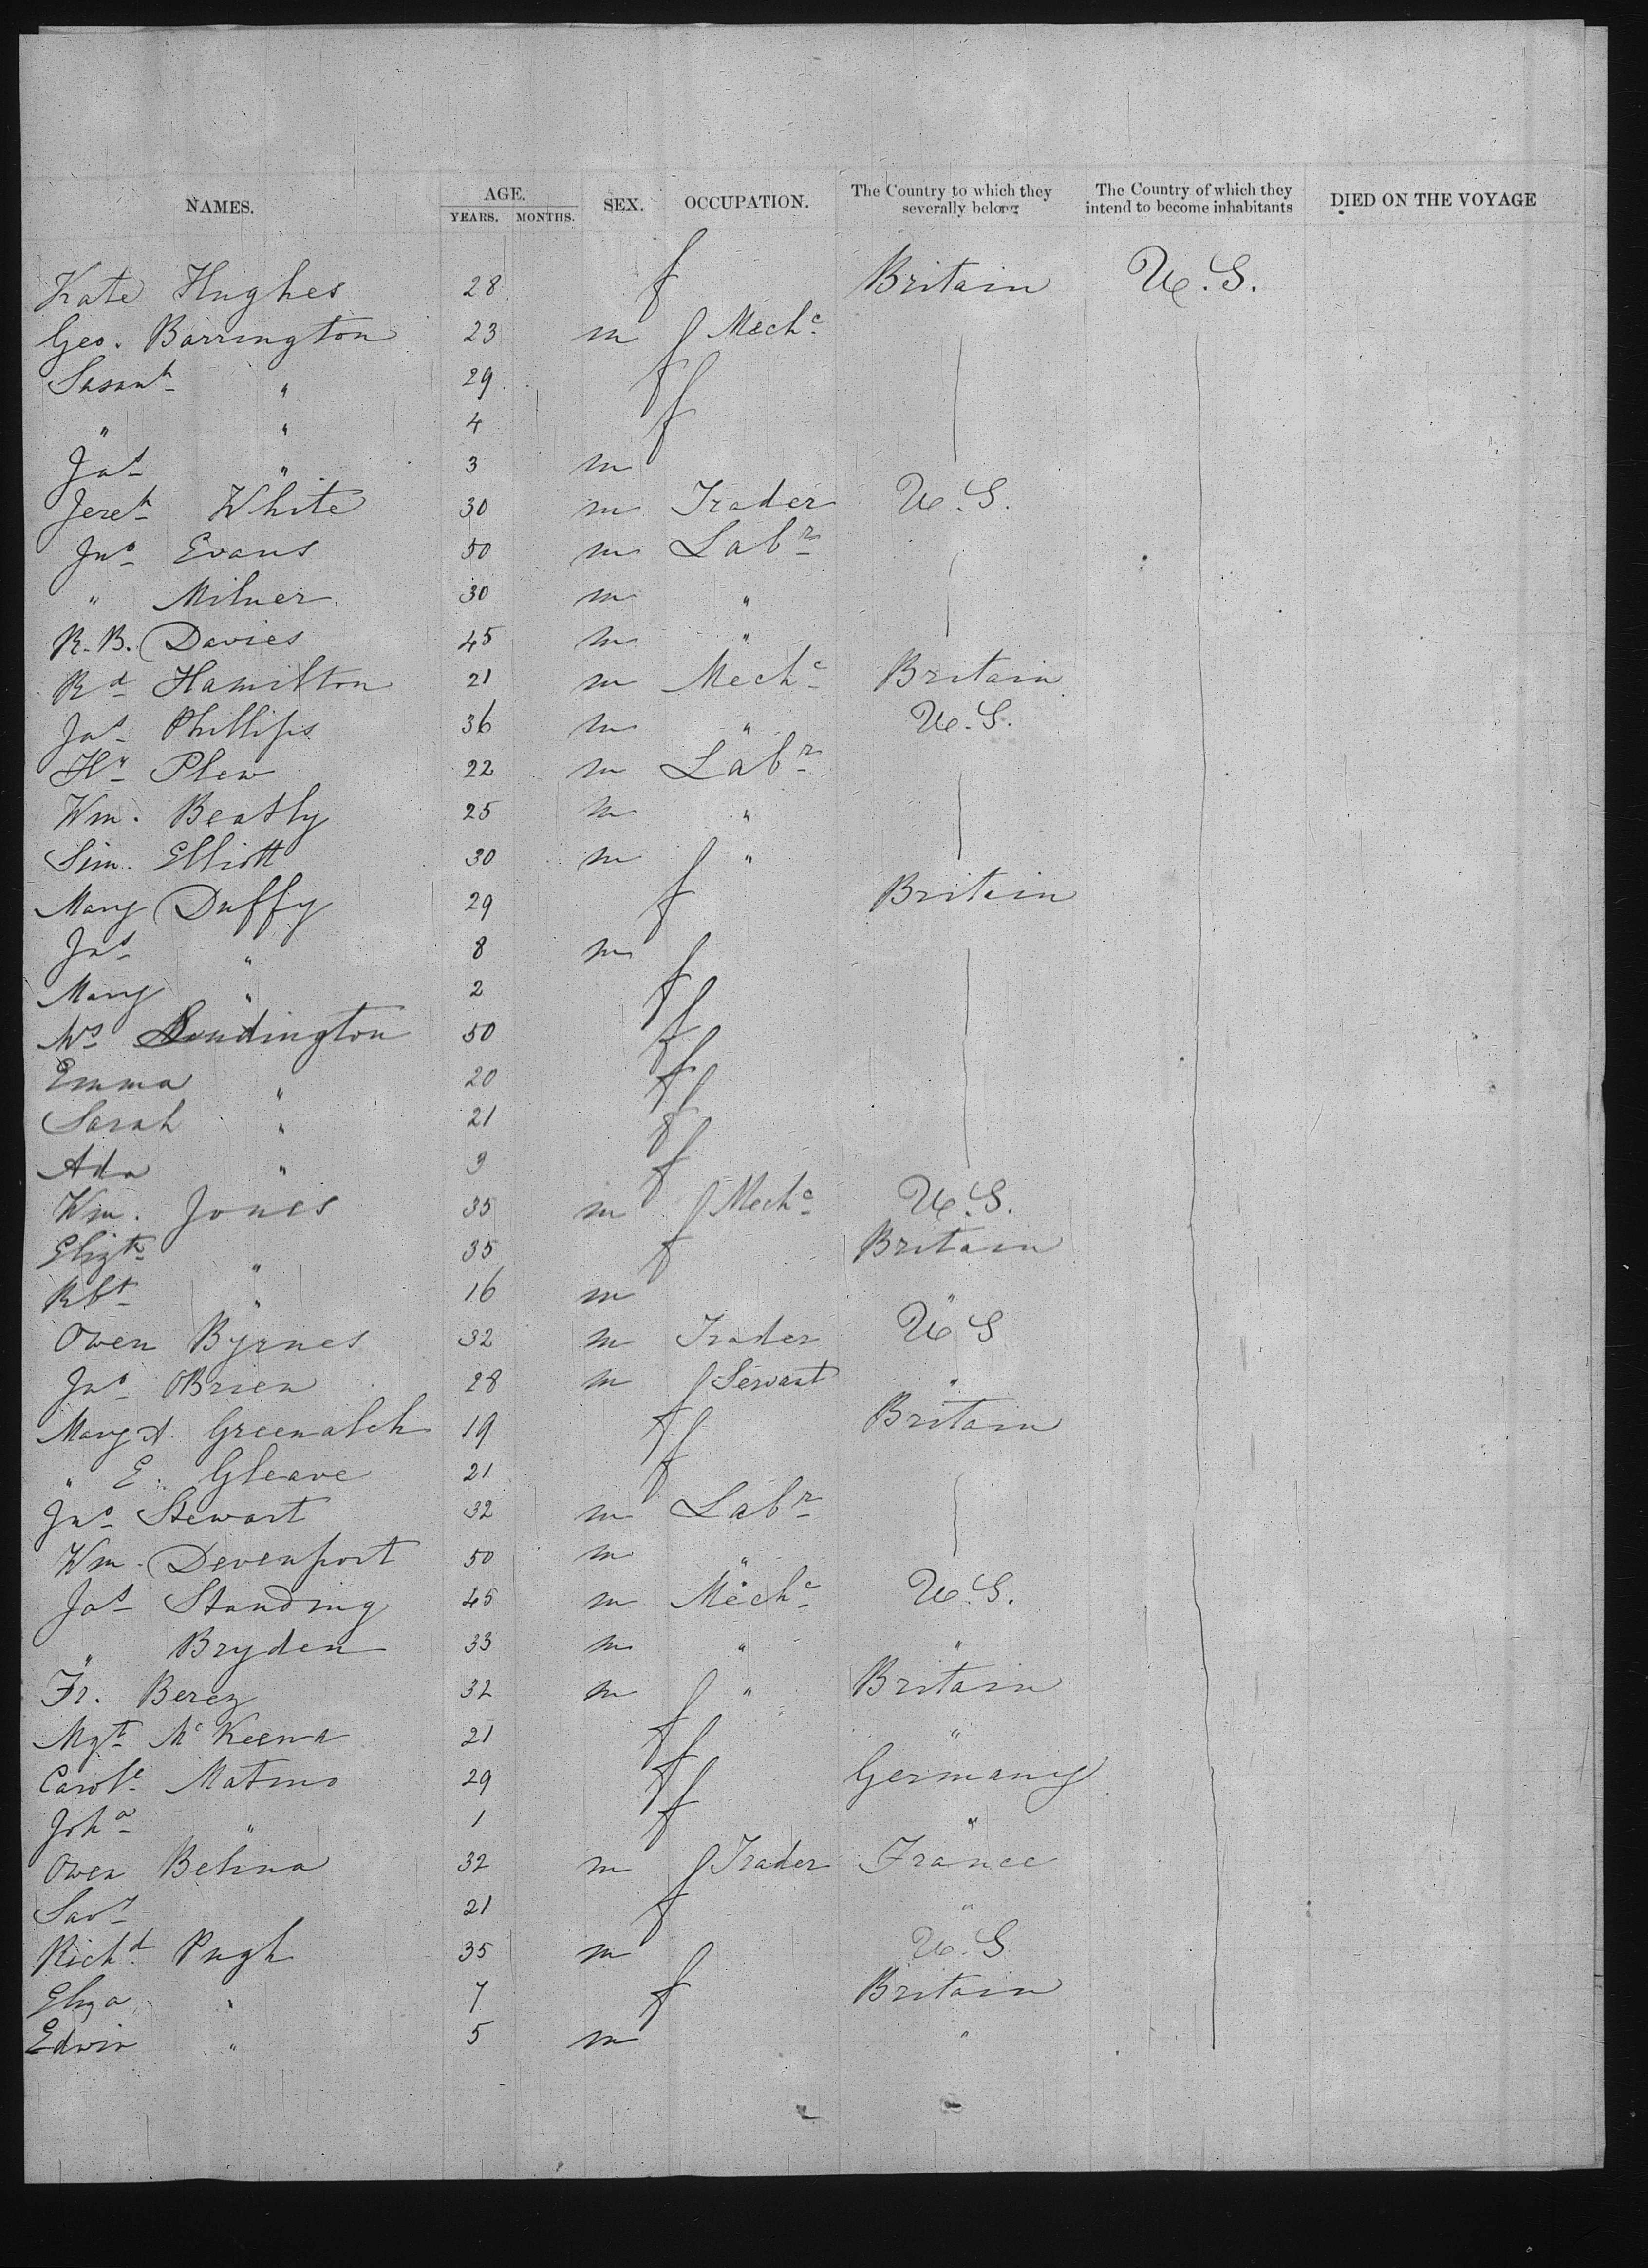 NAMES. AGE. YEARS. MONTHS. SEX. OCCUPATION. The Country to which they severally belong The Country of which they intend to become inhabitants DIED ON THE VOYAGE
Kate Hughes 28 f Britain U.S.
Geo. Barrington 23 m Mechc
Susanh " 29 f
" " 4 f
Jas " 3 m
Jereh White 30 m Trader U.S.
Jno Evans 50 m Labr
" Milner 30 m "
R.B. Davies 45 m "
Rd Hamilton 21 m Mechc Britain
Jas Phillips 36 m " U.S.
Hy Plew 22 m Labr
Wm. Beatty 25 m "
Sim. Elliott 30 m "
Mary Duffy 29 f Britain
Jas " 8 m
Mary " 2 f
Mrs 50 f
Emma " 20 f
Sarah " 21 f
Ada " 9 f
Wm. Jones 35 m Mechc U.S.
Elizth " 35 f Britain
Rbt " 16 m "
Owen Byrnes 32 m Trader U S
Jno OBrien 28 m Servant "
Mary A. Greenalch 19 f Britain
" E. Gleave 21 f
Jno Stewart 32 m Labr
Wm. Devenport 50 m "
Jas Standing 45 m Mechc U.S.
" Bryden 33 m " "
Fr. Berez 32 m " Britain
Mgt McKeena 21 f "
Carole 29 f Germany
Joha " 1 f "
Owen Behna 32 m Trader France
21 f "
Richd. Pugh 35 m U.S
Eliza " 7 f Britain
Edwin " 5 m "